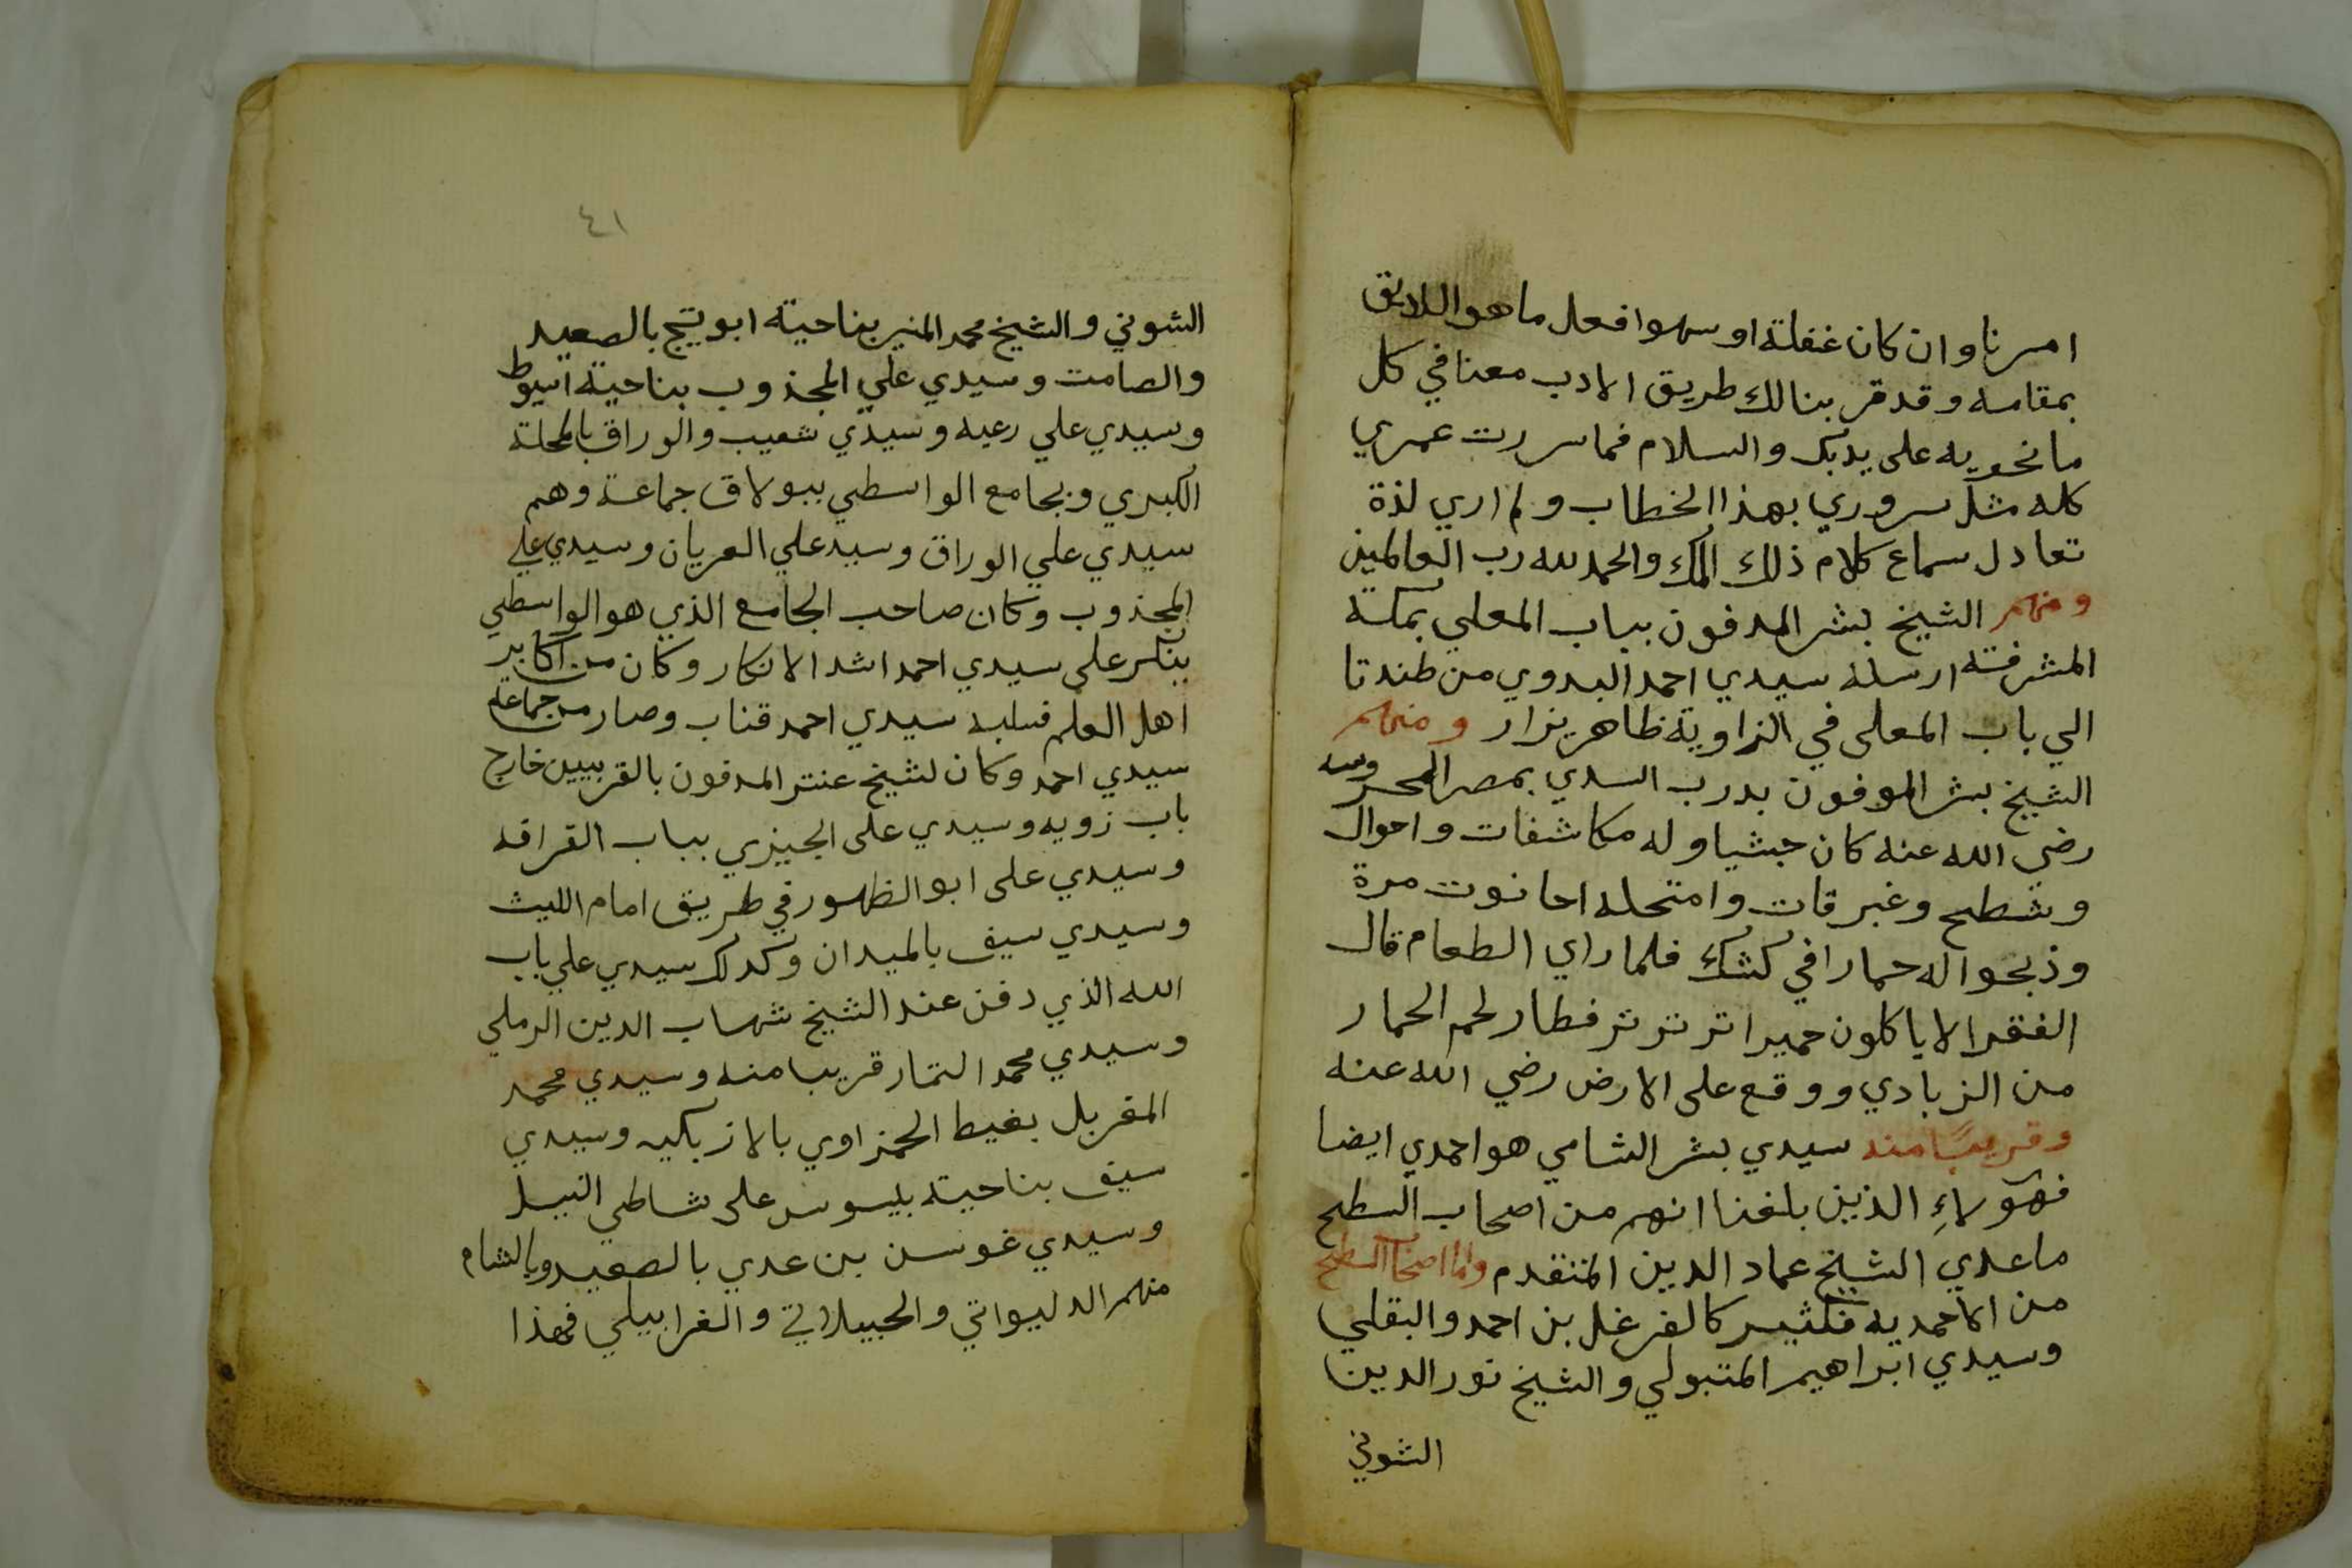 امرنا وان كان غفلة او سهوا فعل ما هو اللايق
بمقامه وقد قربنا لك طريق الادب معنا في كل
ما نحويه على يديك والسلام فما سررت عمري
كله مثل سروري بهذا الخطاب ولم اري لذة
تعادل سماع كلام ذلك الملك والحمد لله رب العالمين
ومنهم الشيخ بشر المدفون بباب المعلي بمكة
المشرفة ارسله سيدي احمد البدوي من طندتا
الي باب المعلى في الزاوية ظاهر يزار ومنهم
الشيخ بشر الموفون بدرب السدي بمصر المحروسه
رضي الله عنه كان حبشيا وله مكاشفات واحوال
وشطح وغبرقات وامتحله احانوت مرة
وذبحوا له حمارا في كشك فلما راي الطعام قال
الفقرا لا ياكلون حميرا تر تر تر فطار لحم الحمار
من الزبادي ووقع على الارض رضي الله عنه
وقريبًا منه سيدي بشر الشامي هو احمدي ايضا
فهولاءِ الذين بلغنا انهم من اصحاب السطح
ما عدي الشيخ عماد الدين المتقدم واما اصحاب السطح
من الاحمديه فكثير كالفرغل بن احمد والبقلي
وسيدي ابراهيم المتبولي والشيخ نور الدين
الشوني
٤١
الشوني والشيخ محمد المنير بناحية ابو تيج بالصعيد
والصامت وسيدي علي المجذوب بناحية اسيوط
وسيدي علي رعيه وسيدي شعيب والوراق بالمحلة
الكبري وبجامع الواسطي ببولاق جماعة وهم
سيدي علي الوراق وسيد علي العريان وسيدي علي
المجذوب وكان صاحب الجامع الذي هو الواسطي
ينكر على سيدي احمد اشد الانكار وكان من اكابر
اهل العلم فسلبه سيدي احمد فتاب وصار من جماعة
سيدي احمد وكان لشيخ عنتر المدفون بالقربيين خارج
باب زويه وسيدي على الجيزي بباب القرافه
وسيدي على ابو الظهور في طريق امام الليث
وسيدي سيف بالميدان وكدلك سيدي علي باب
الله الذي دفن عند الشيخ شهاب الدين الرملي
وسيدي محمد التمار قريبا منه وسيدي محمد
المغربل بغيط الحمزاوي بالازبكيه وسيدي
سيف بناحية بليسوس على شاطي النيل
وسيدي غوسن بن عدي بالصعيد وبالشام
منهم الدليواتي والجيلاتي والغرابيلي فهذا